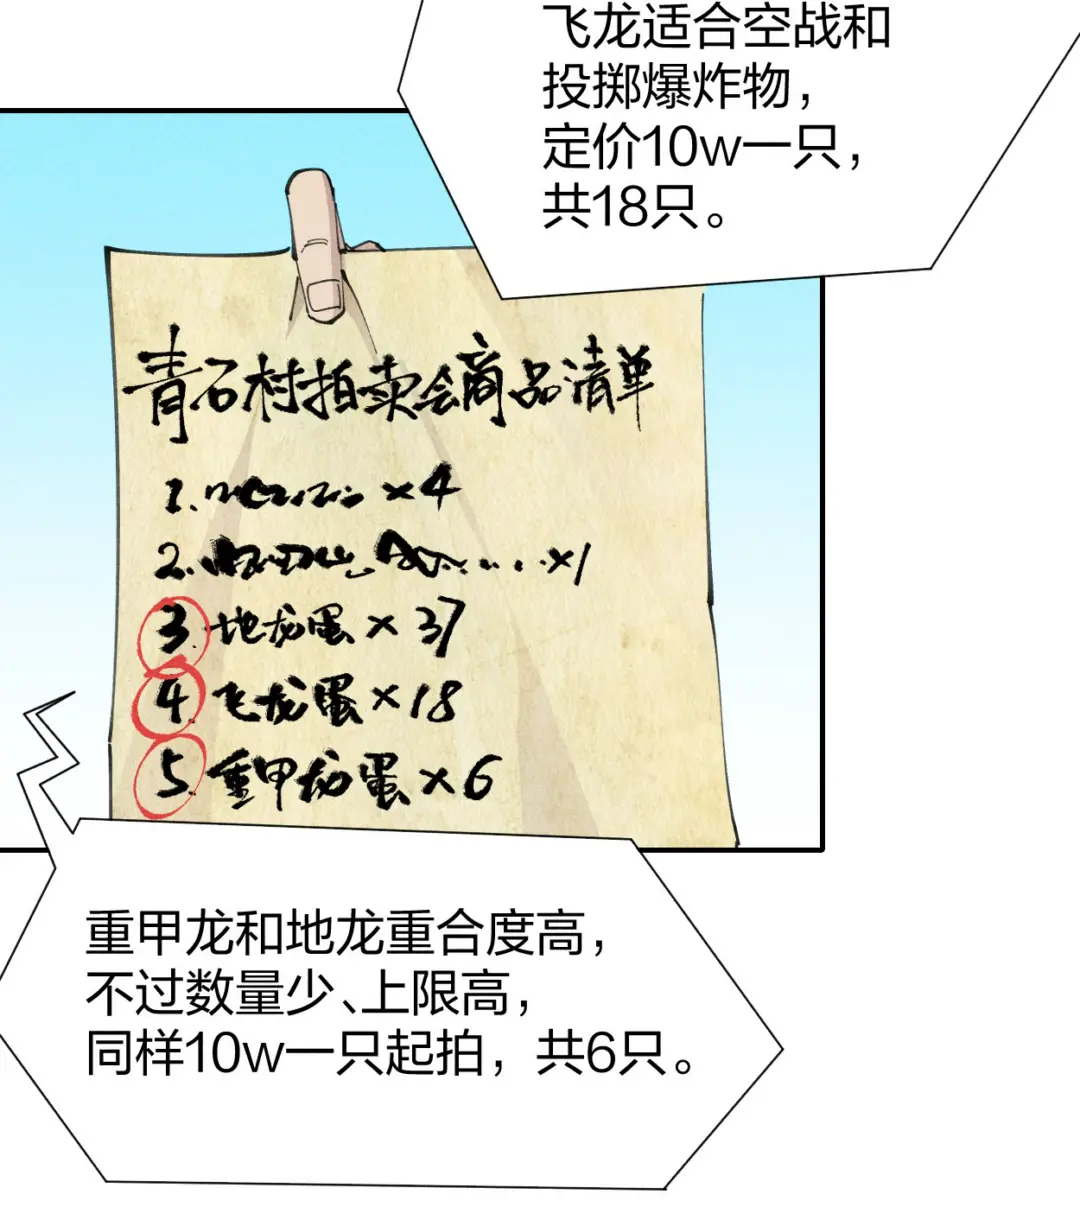 飞龙适合空战和
投掷爆炸物，
定价10w一只，
共18只。
青石村拍卖会商品清单
1. ×4
2. ......×1
3. 地龙蛋×37
4. 飞龙蛋×18
5. 重甲龙蛋×6
重甲龙和地龙重合度高，
不过数量少、上限高，
同样10w一只起拍，共6只。